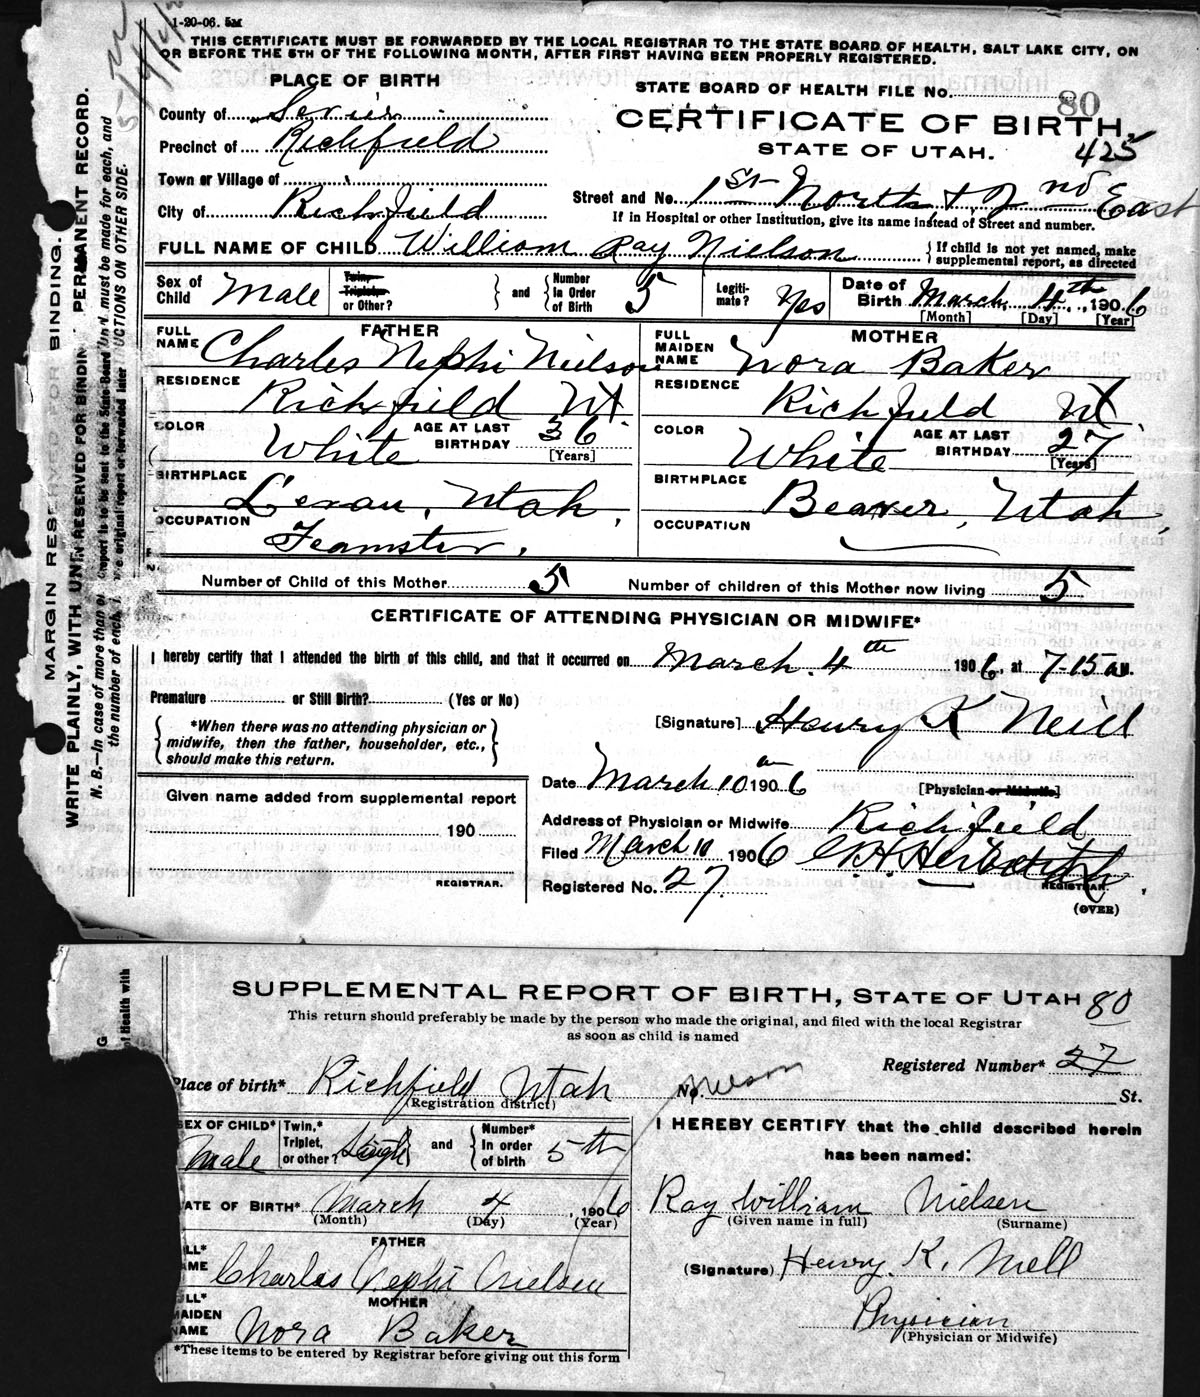 1-20-06. 5M
THIS CERTIFICATE MUST BE FORWARDED BY THE LOCAL REGISTRAR TO THE STATE BOARD OF HEALTH, SALT LAKE CITY, ON
OR BEFORE THE 5TH OF THE FOLLOWING MONTH, AFTER FIRST HAVING BEEN PROPERLY REGISTERED.
PLACE OF BIRTH
STATE BOARD OF HEALTH FILE No. 80
County of Sevier
CERTIFICATE OF BIRTH,
Precinct of Richfield
STATE OF UTAH. 425
Town or Village of
Street and No. 1st North & 2nd East
City of Richfield
If in Hospital or other Institution, give its name instead of Street and number.
FULL NAME OF CHILD William Ray Nielson
If child is not yet named, make
supplemental report, as directed
Sex of Child Male
Twin, Triplet, or Other?
and Number in Order of Birth 5
Legiti-mate? Yes
Date of Birth March 4th, 1906
[Month] [Day] [Year]
FATHER
FULL NAME Charles Nephi Nielson
RESIDENCE Richfield Ut
COLOR White
AGE AT LAST BIRTHDAY 36
[Years]
BIRTHPLACE Utah,
OCCUPATION Teamster.
MOTHER
FULL MAIDEN NAME Nora Baker
RESIDENCE Richfield Ut
COLOR White
AGE AT LAST BIRTHDAY 27
[Years]
BIRTHPLACE Beaver, Utah,
OCCUPATION
Number of Child of this Mother 5 Number of children of this Mother now living 5
CERTIFICATE OF ATTENDING PHYSICIAN OR MIDWIFE*
I hereby certify that I attended the birth of this child, and that it occurred on March. 4th 1906, at 7-15 a M.
Premature or Still Birth? (Yes or No)
*When there was no attending physician or
midwife, then the father, householder, etc.,
should make this return.
[Signature] Henry K Neill
Date March 10 1906
[Physician or Midwife]
Given name added from supplemental report
190
REGISTRAR.
Address of Physician or Midwife Richfield
Filed March 10 1906
REGISTRAR.
Registered No. 27
(OVER)
MARGIN RESERVED FOR BINDING.
WRITE PLAINLY, WITH UN RESERVED FOR BINDIN PERMANENT RECORD.
N. B.—In case of more than o report is to be sent to the State Board must be made for each, and
the number of each, e original report or forwarded later CTIONS ON OTHER SIDE.
of Health with
SUPPLEMENTAL REPORT OF BIRTH, STATE OF UTAH 80
This return should preferably be made by the person who made the original, and filed with the local Registrar
as soon as child is named
Registered Number* 27
Place of birth* Richfield Utah No. St.
(Registration district)
SEX OF CHILD* Male
Twin,* Triplet, or other? Single
and Number* In order of birth 5th
I HEREBY CERTIFY that the child described herein
has been named:
DATE OF BIRTH* March 4, 1906
(Month) (Day) (Year)
Ray William Nielsen
(Given name in full) (Surname)
FATHER
LL* AME Charles Nephi Nielsen
(Signature) Henry. K. Neill
MOTHER
LL* MAIDEN NAME Nora Baker
Physician
(Physician or Midwife)
*These items to be entered by Registrar before giving out this form